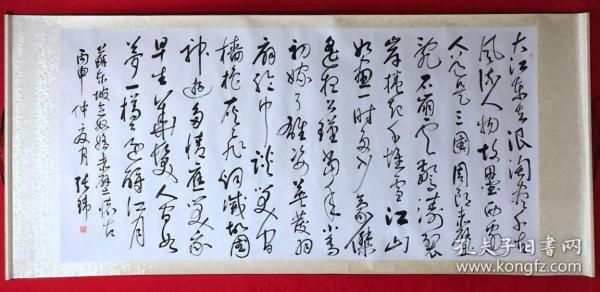 大江东去浪淘尽千古
风流人物故垒西边
人道是三国周郎赤壁
乱石崩云惊涛裂
岸卷起千堆雪江山
如画一时多少豪杰
遥想公瑾当年小乔
初嫁了雄姿英发羽
扇纶巾谈笑间
樯橹灰飞烟灭故国
神游多情应笑我
早生华发人间如
梦一樽还酹江月
苏东坡念奴娇赤壁怀古
丙申仲夏月
孔夫子旧书网
www.kongfz.com